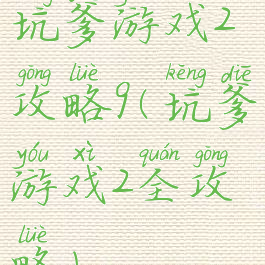 坑爹游戏2
gōng lüè kēng diē
攻略9(坑爹
yóu xì quán gōng
游戏2全攻
lüè
略)